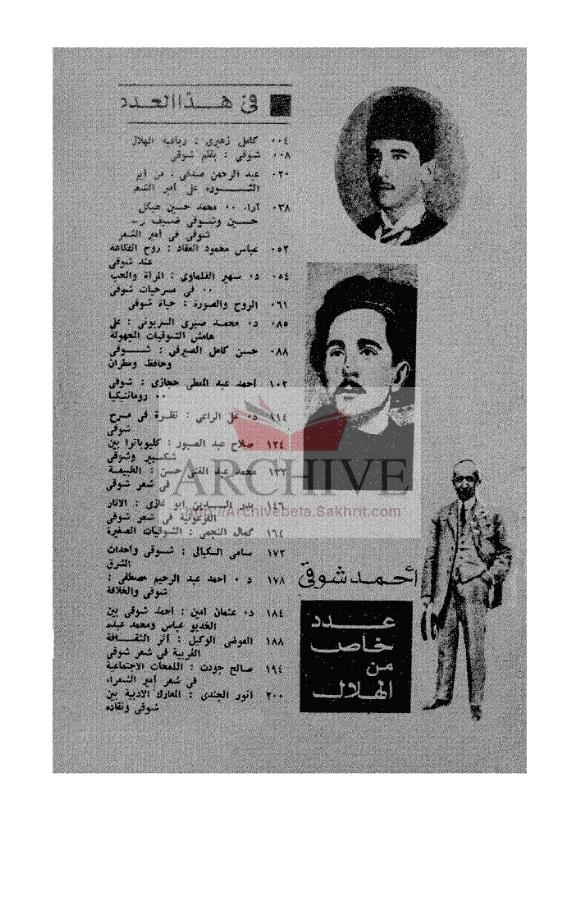 في هذا العدد
٠٠٤ كامل زهيرى : رباعية الهلال
٠٠٨ شوقى : بقلم شوقى
٠٢٠ عبد الرحمن صدقى : من أين
الثورة على أمير الشعر
٠٣٨ آراء ٠٠ محمد حسين هيكل
حسين وشوقى ضيف
شوقى فى أمير الشعر
٠٥٢ عباس محمود العقاد : روح الفكاهة
عند شوقى
٠٥٤ د٠ سهير القلماوى : المرأة والحب
٠٠ فى مسرحيات شوقى
٠٦١ الروح والصورة : حياة شوقى
٠٨٥ د٠ محمد صبرى السربونى : على
هامش الشوقيات المجهولة
٠٨٨ حسن كامل الصيرفى : شوقى
وحافظ ومطران
١٠٢ أحمد عبد المعطى حجازى : شوقى
٠٠ رومانتيكيا
١١٤ د٠ على الراعى : نظرة فى مسرح
شوقى
١٢٤ صلاح عبد الصبور : كليوباترا بين
شكسبير وشوقى
١٣٢ محمد عبد الغنى حسن : الطبيعة
فى شعر شوقى
١٤٦ بدر الدين أبو غازى : الآثار
الفرعونية فى شعر شوقى
١٦٤ كمال النجمى : الشوقيات الصغيرة
١٧٢ سامى الكيالى : شوقى وأحداث
الشرق
١٧٨ د٠ أحمد عبد الرحيم مصطفى :
شوقى والخلافة
١٨٤ د٠ عثمان أمين : أحمد شوقى بين
الخديو عباس ومحمد عبده
١٨٨ العوضى الوكيل : أثر الثقافة
الغربية فى شعر شوقى
١٩٤ صالح جودت : اللمحات الاجتماعية
فى شعر أمير الشعراء
٢٠٠ أنور الجندى : المعارك الأدبية بين
شوقى ونقاده
أحمد شوقي
عدد
خاص
من
الهلال
ARCHIVE
http://Archivebeta.Sakhrit.com